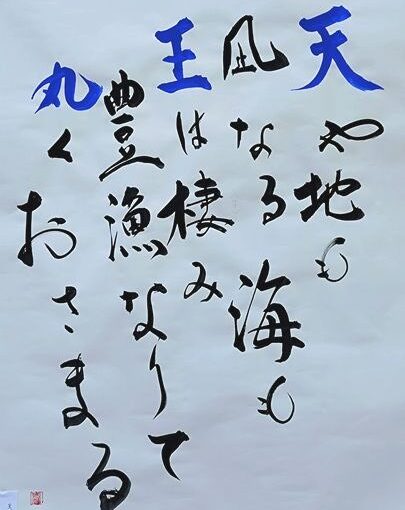 天や地も
凪なる海も
王は棲み
豊漁なりて
丸くおさまる